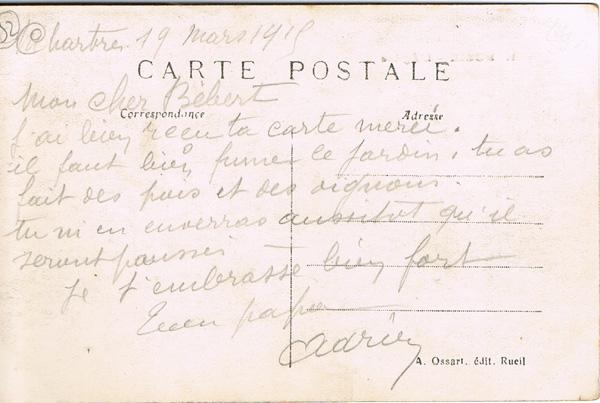 52
Chartres 19 mars 1915
CARTE POSTALE
Mon cher Bébert
Correspondance
Adresse
j'ai bien reçu ta carte merci.
il faut bien fumer le jardin. tu as
fait des pois et des oignons.
tu m'en enverras aussitot qu'il
seront poussés
Je t'embrasse bien fort
papa
Adrien
A. Ossart, édit. Rueil